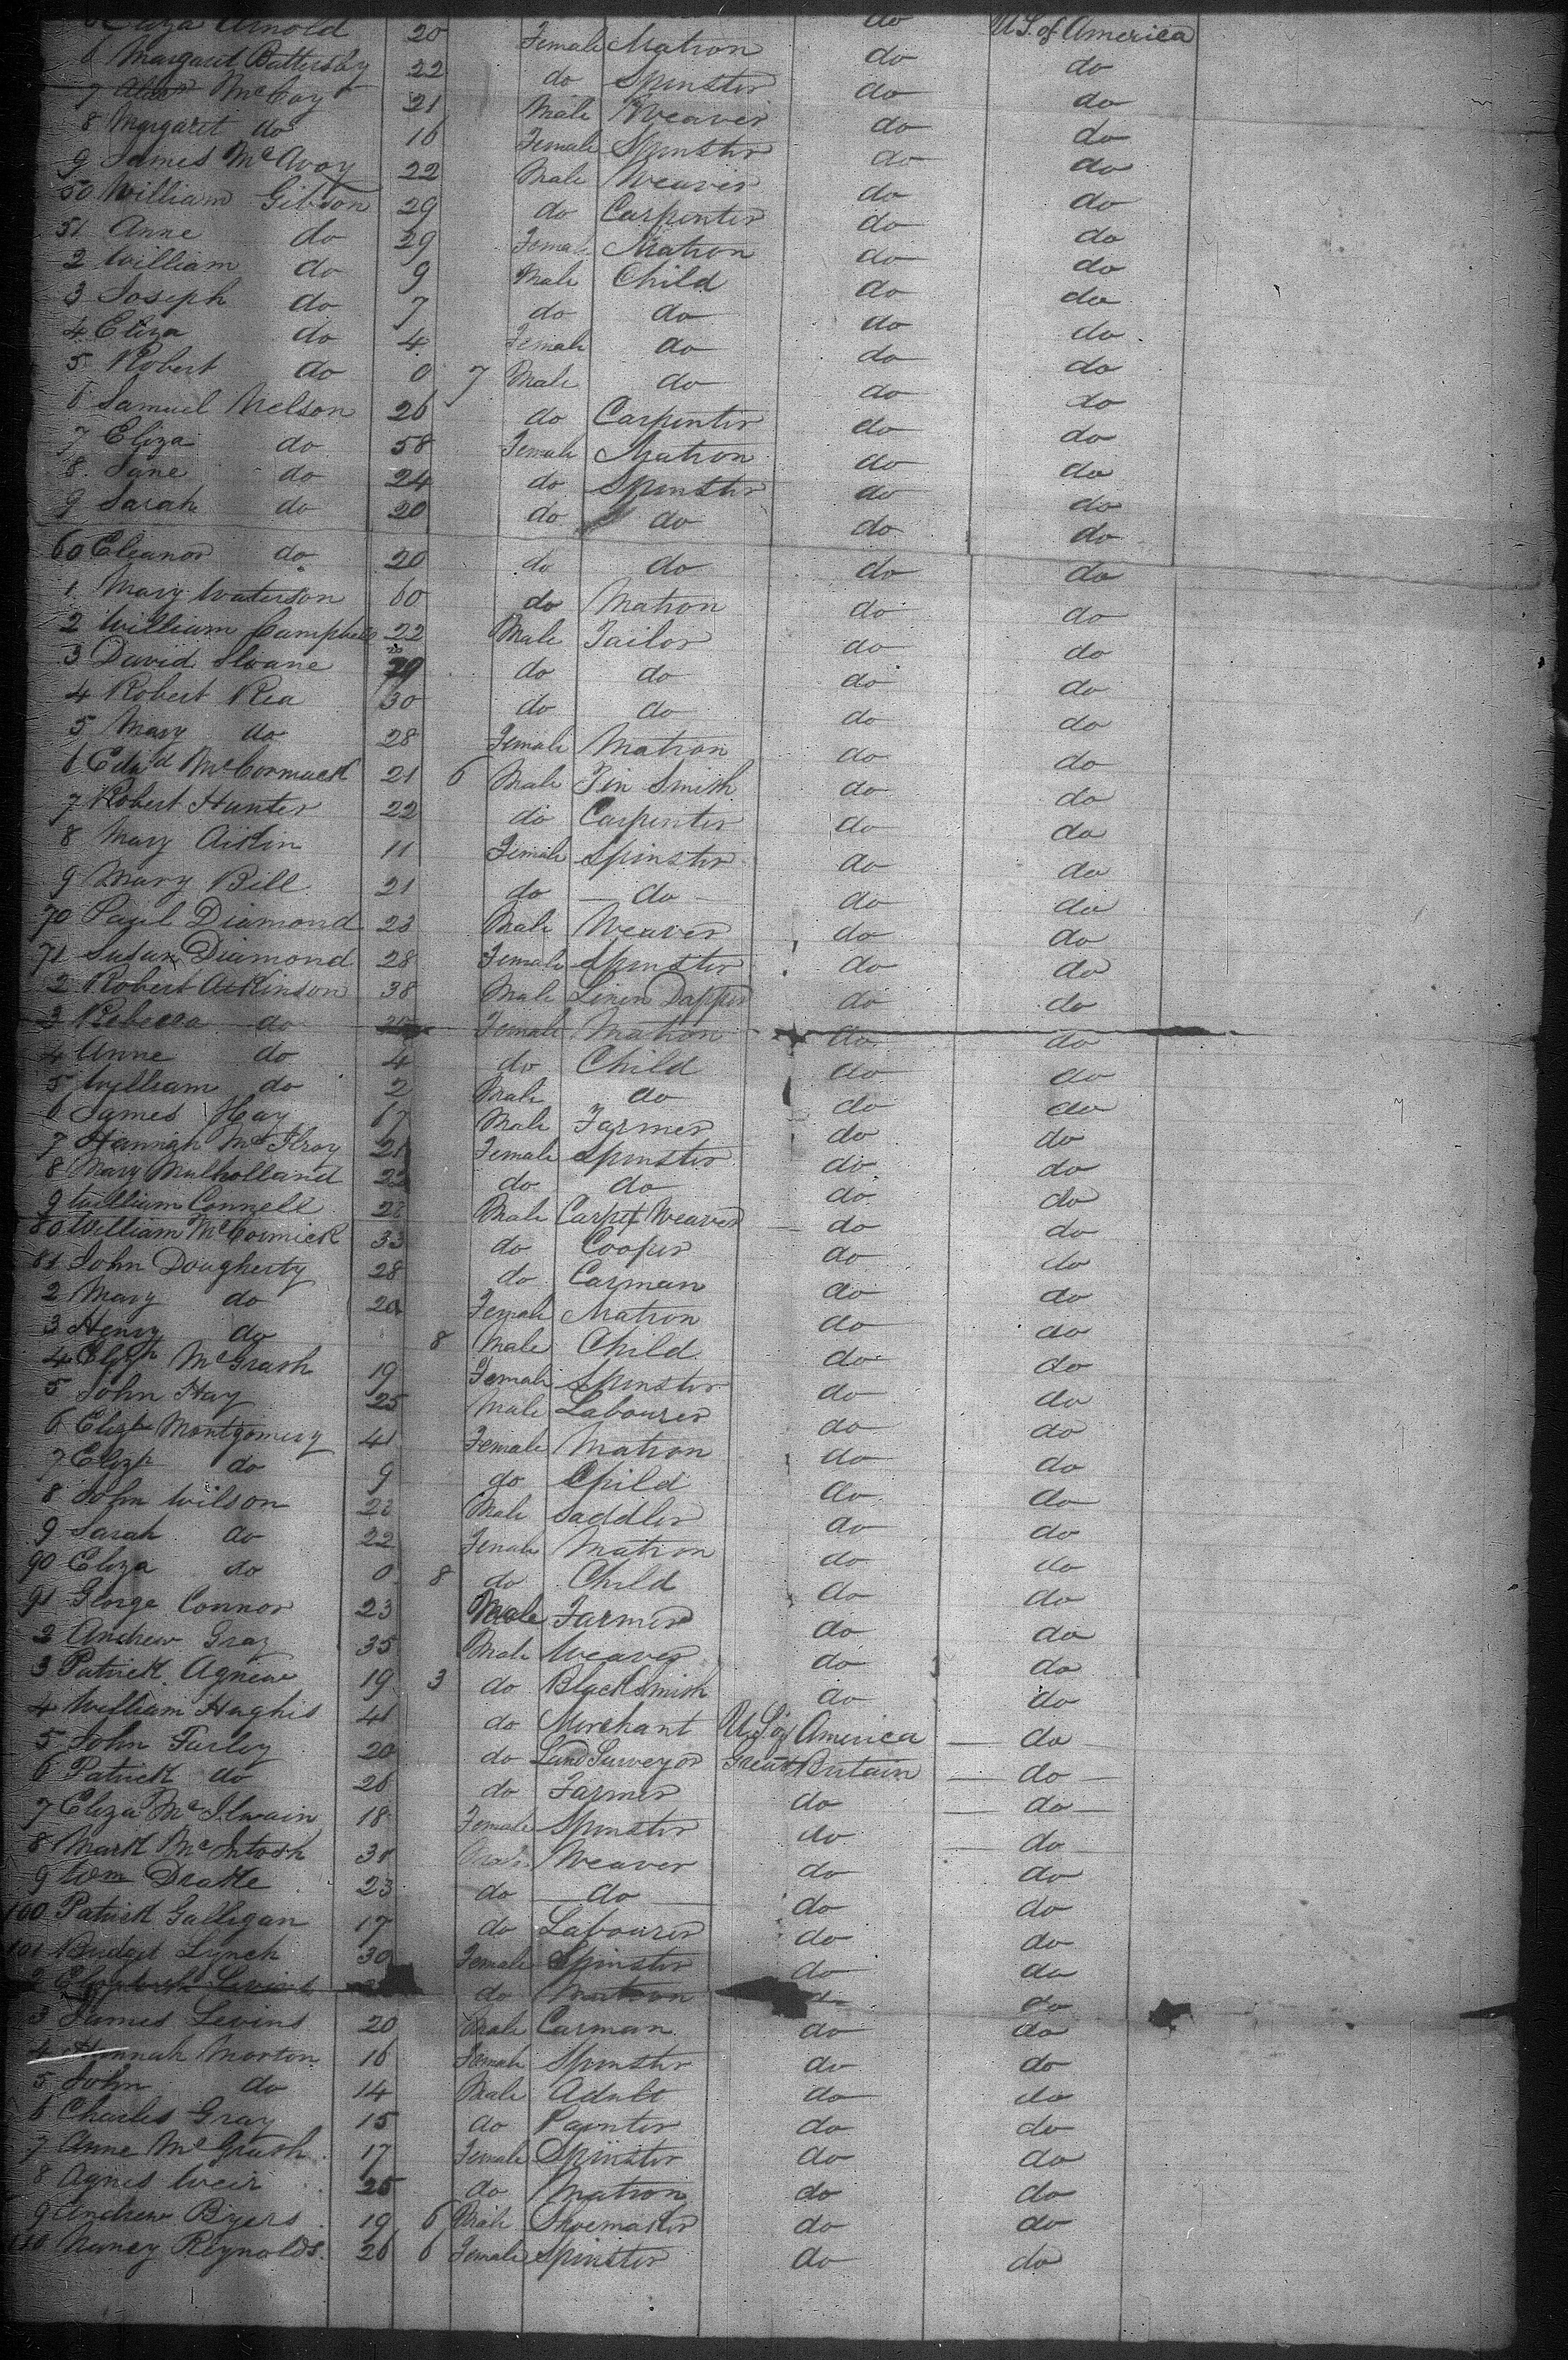 Eliza Arnold 20 Female Matron do U.S. of America
6 Margaret Battersby 22 do Spinster do do
7 McCay 21 Male Weaver do do
8 Margaret do 16 Female Spinster do do
9 James McAvoy 22 Male Weaver do do
50 William Gibson 29 do Carpenter do do
51 Anne do 29 Female Matron do do
2 William do 9 Male Child do do
3 Joseph do 7 do do do do
4 Eliza do 4 Female do do do
5 Robert do 0 7 Male do do do
6 Samuel Nelson 26 do Carpenter do do
7 Eliza do 58 Female Matron do do
8 Jane do 24 do Spinster do do
9 Sarah do 20 do do do do
60 Eleanor do 20 do do do do
1 Mary Waterson 60 do Matron do do
2 William Campbell 22 Male Tailor do do
3 David Sloane do do do do
4 Robert Rea 30 do do do do
5 Mary do 28 Female Matron do do
6 Edwd McCormack 21 6 Male Tin Smith do do
7 Robert Hunter 22 do Carpenter do do
8 Mary Aikin 11 Female Spinster do do
9 Mary Bell 21 do do do do
70 Paul Diamond 23 Male Weaver do do
71 Susan Diamond 28 Female Spinster do do
2 Robert Atkinson 38 Male Linen Dapper do do
3 Rebecca do Female Matron do do
4 Anne do 4 do Child do do
5 William do 2 Male do do do
6 James Hay 67 Male Farmer do do
7 Hannah McIlroy 21 Female Spinster do do
8 Mary Mulholland 22 do do do do
9 William Connell 22 Male Carpet Weaver do do
80 William McCormick 33 do Cooper do do
81 John Dougherty 28 do Carman do do
2 Mary do 20 Female Matron do do
3 Henry do 8 Male Child do do
4 Elizh McGrath 19 Female Spinster do do
5 John Hay 25 Male Labourer do do
6 Elizh Montgomery 41 Female Matron do do
7 Elizh do 9 do Child do do
8 John Wilson 23 Male Saddler do do
9 Sarah do 22 Female Matron do do
90 Eliza do 0 8 do Child do do
91 George Connor 23 Male Farmer do do
2 Andrew Gray 35 Male Weaver do do
3 Patrick Agnew 19 3 do BlackSmith do do
4 William Hughes 41 do Merchant U.S. of America do
5 John Farley 20 do Land Surveyor Great Britain do
6 Patrick do 26 do Farmer do do
7 Eliza McIlwain 18 Female Spinster do do
8 Mark McIntosh 31 Male Weaver do do
9 Wm Drake 23 do do do do
100 Patrick Galligan 17 do Labourer do do
101 Bridget Lynch 30 Female Spinster do do
2 Elizabeth Levins do Matron do do
3 James Levins 20 Male Carman do do
4 Hannah Morton 16 Female Spinster do do
5 John do 14 Male Adult do do
6 Charles Gray 15 do Painter do do
7 Anne McGrath 17 Female Spinster do do
8 Agnes Weir 25 do Matron do do
9 Andrew Byers 19 6 Male Shoemaker do do
110 Nancy Reynolds 26 6 Female Spinster do do